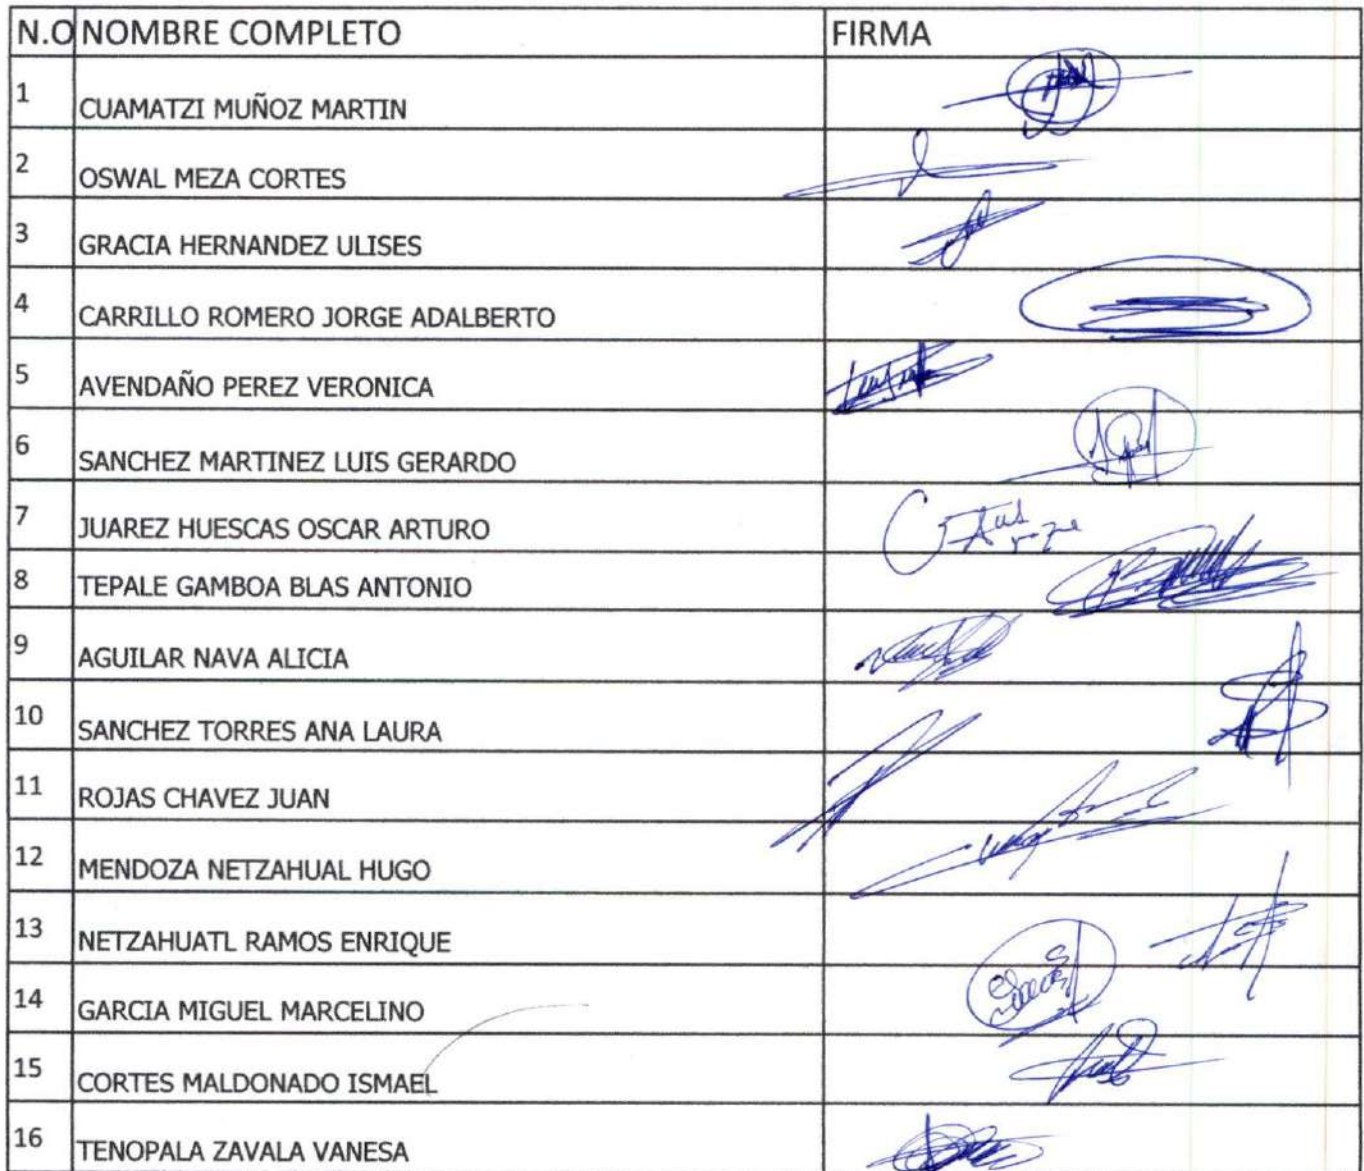 N.O NOMBRE COMPLETO FIRMA
1 CUAMATZI MUÑOZ MARTIN
2 OSWAL MEZA CORTES
3 GRACIA HERNANDEZ ULISES
4 CARRILLO ROMERO JORGE ADALBERTO
5 AVENDAÑO PEREZ VERONICA
6 SANCHEZ MARTINEZ LUIS GERARDO
7 JUAREZ HUESCAS OSCAR ARTURO
8 TEPALE GAMBOA BLAS ANTONIO
9 AGUILAR NAVA ALICIA
10 SANCHEZ TORRES ANA LAURA
11 ROJAS CHAVEZ JUAN
12 MENDOZA NETZAHUAL HUGO
13 NETZAHUATL RAMOS ENRIQUE
14 GARCIA MIGUEL MARCELINO
15 CORTES MALDONADO ISMAEL
16 TENOPALA ZAVALA VANESA